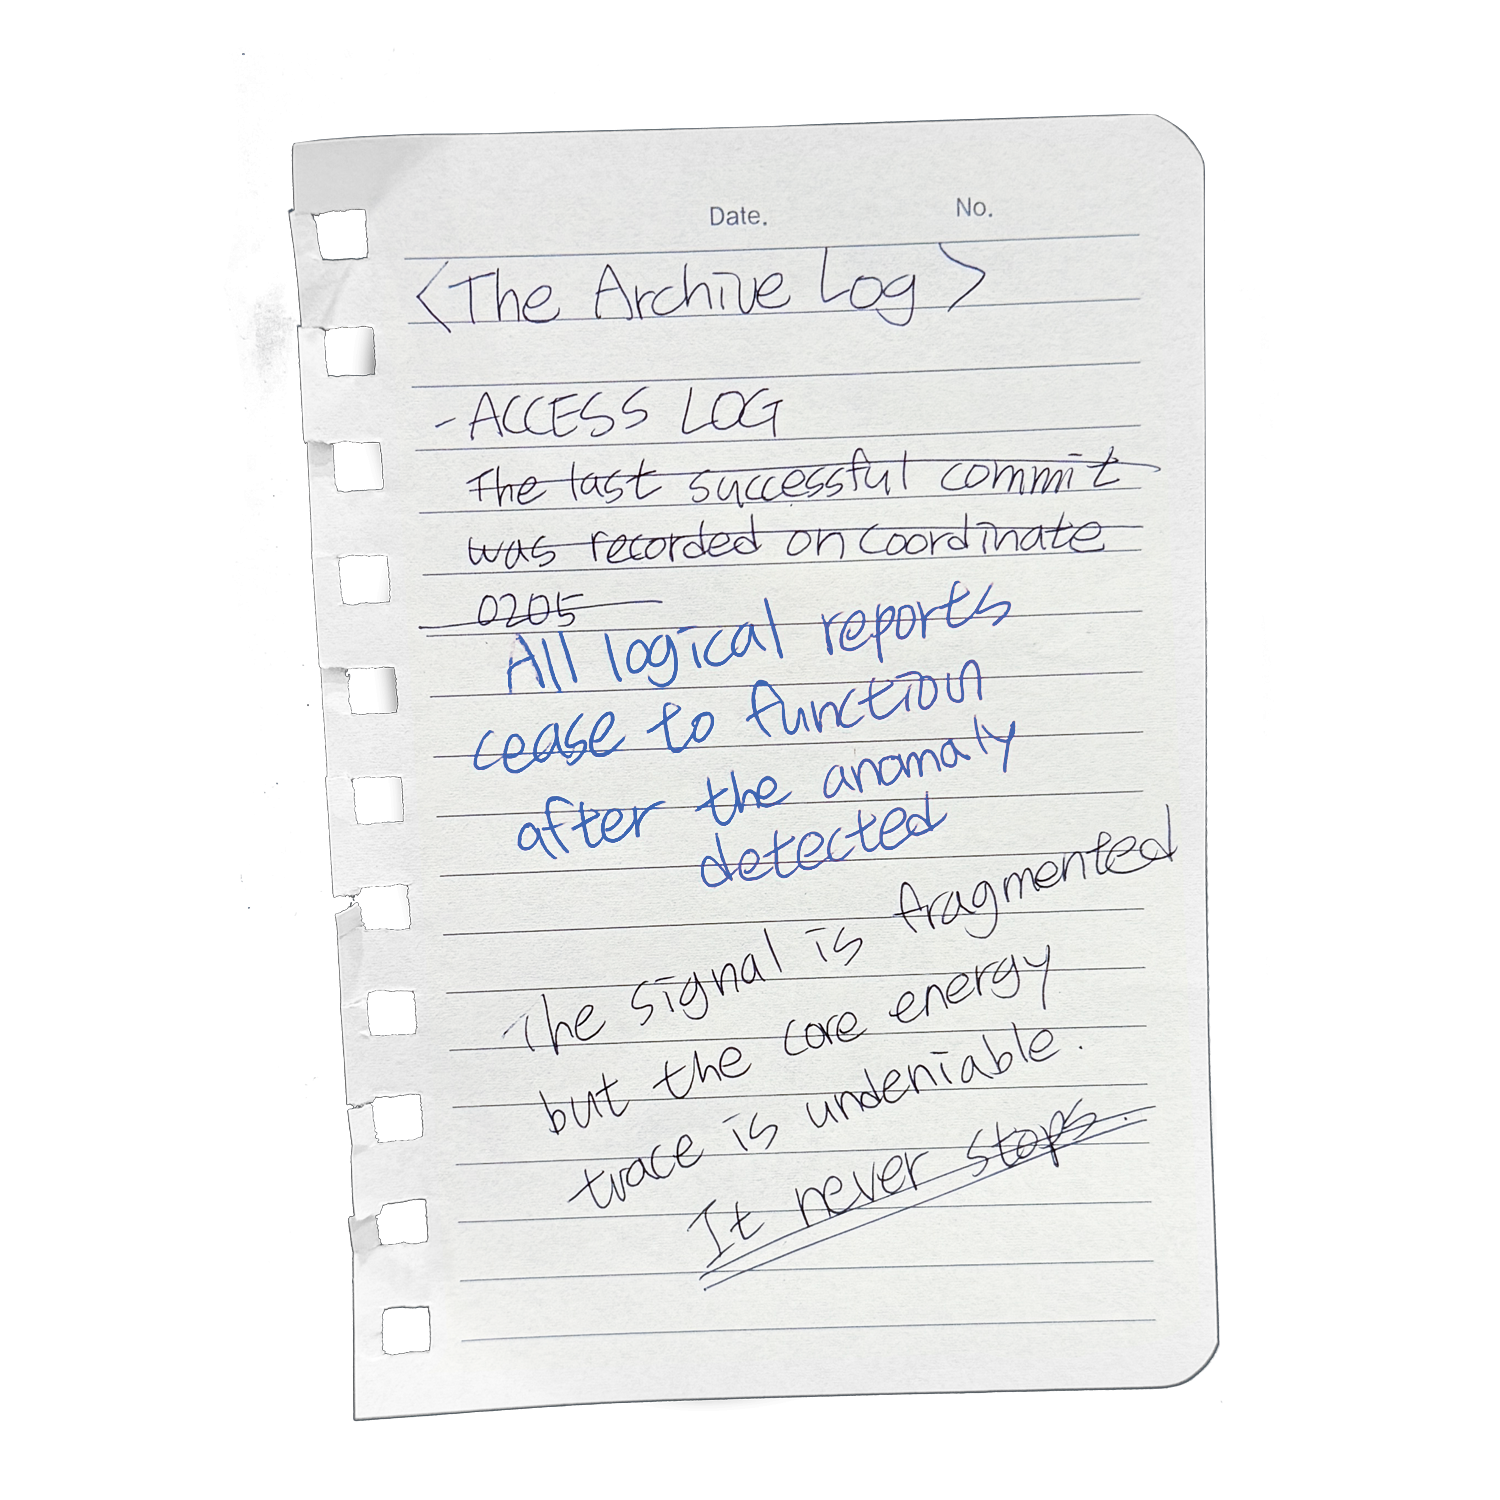 Date. No.
<The Archive Log>
-ACCESS LOG
The last successful commit
was recorded on coordinate
0205
All logical reports
cease to function
after the anomaly
detected
The signal is fragmented
but the core energy
trace is undeniable.
It never stops.